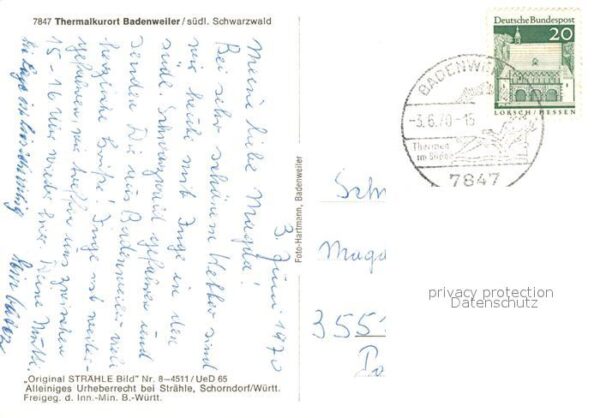 7847 Thermalkurort Badenweiler/südl. Schwarzwald
3. Juni 1970
Meine liebe Magda!
Bei sehr schönem Wetter sind
wir heute mit Inge in den
südl. Schwarzwald gefahren und
senden Dir aus Badenweiler
herzliche Grüße! Inge ist weiter-
gefahren, wir treffen uns zwischen
15-16 Uhr wieder hier. Deine
Foto-Hartmann, Badenweiler
Deutsche Bundespost
20
LORSCH/HESSEN
BADENWEI
-3.6.70-15
Thermen
im Süden
7847
Mag
355
privacy protection
Datenschutz
„Original STRÄHLE Bild" Nr. 8-4511/UeD 65
Alleiniges Urheberrecht bei Strähle, Schorndorf/Württ.
Freigeg. d. Inn.-Min. B.-Württ.